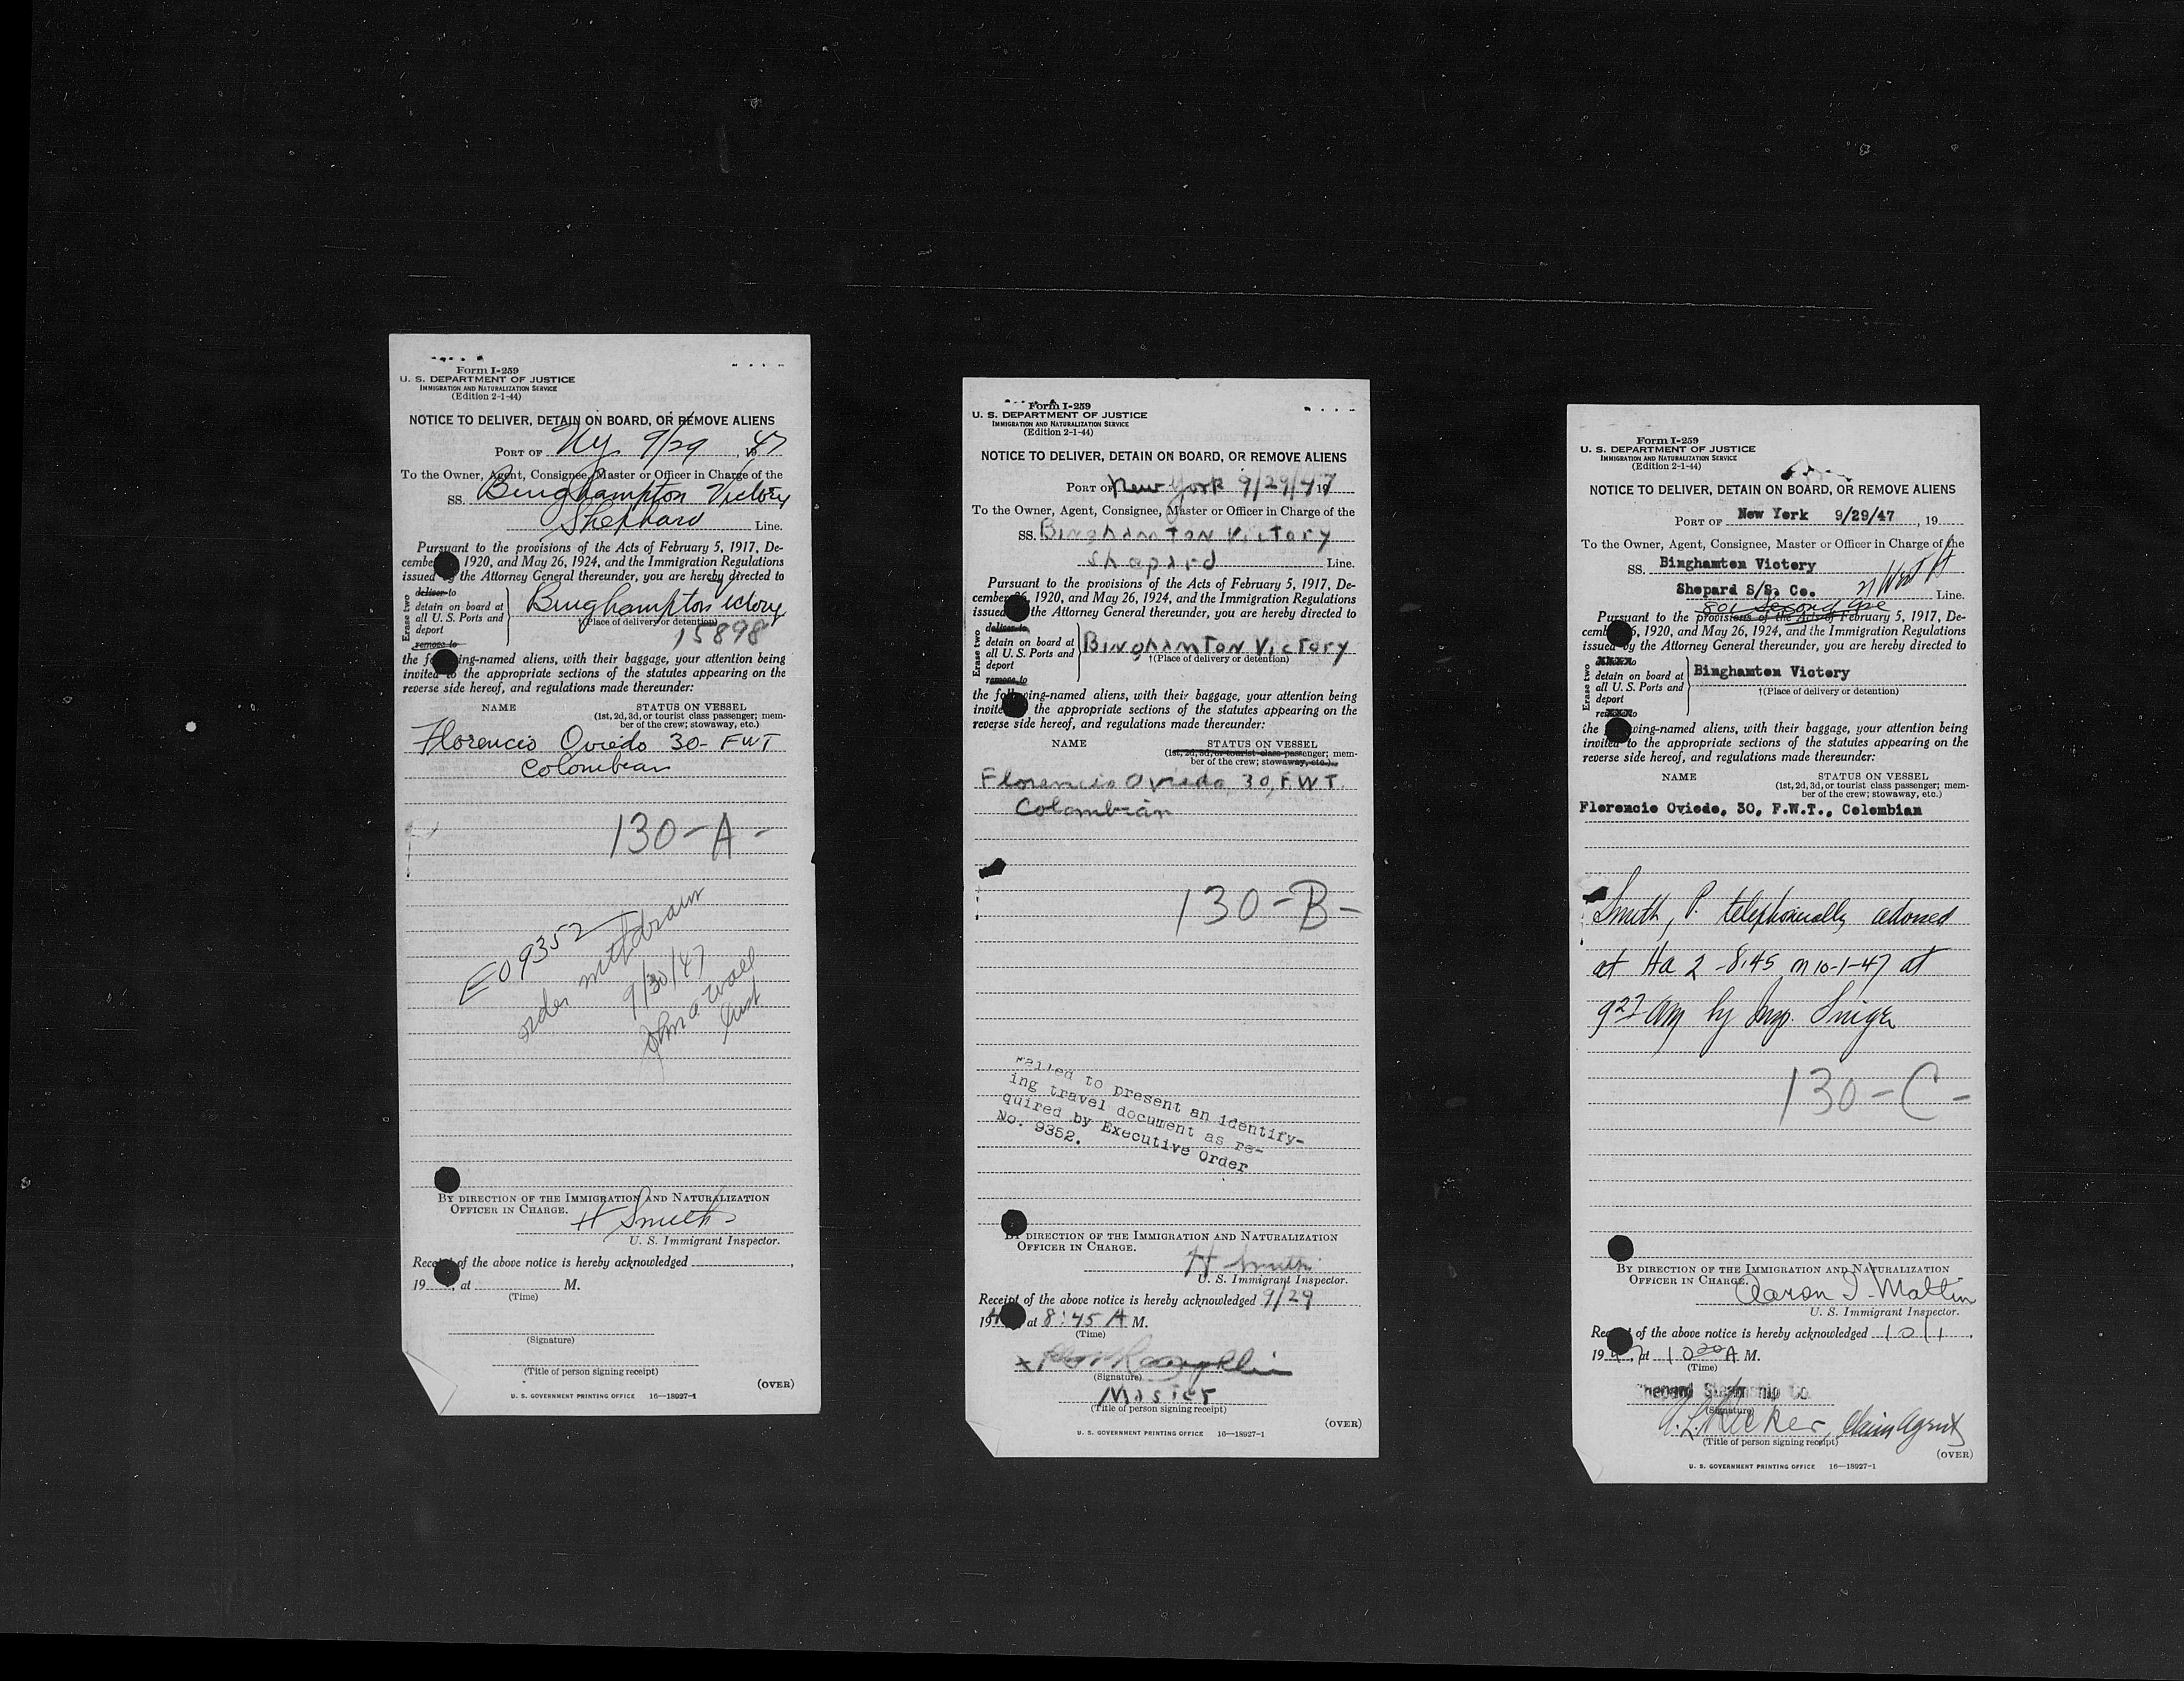 Form I-259
U. S. DEPARTMENT OF JUSTICE
IMMIGRATION AND NATURALIZATION SERVICE
(Edition 2-1-44)
NOTICE TO DELIVER, DETAIN ON BOARD, OR REMOVE ALIENS
PORT OF Ny 9/29, 1947
To the Owner, Agent, Consignee, Master or Officer in Charge of the
SS. Binghampton Victory
Shephard Line.
Pursuant to the provisions of the Acts of February 5, 1917, De-
cember 1920, and May 26, 1924, and the Immigration Regulations
issued by the Attorney General thereunder, you are hereby directed to
Erase two
deliver to
detain on board at
all U. S. Ports and
deport
remove to
Binghampton ictory
†(Place of delivery or detention)
15898
the following-named aliens, with their baggage, your attention being
invited to the appropriate sections of the statutes appearing on the
reverse side hereof, and regulations made thereunder:
NAME STATUS ON VESSEL
(1st, 2d, 3d, or tourist class passenger; mem-
ber of the crew; stowaway, etc.)
Florencio Oviedo 30- FWT
Colombian
130-A-
EO 9352
order withdrawn
9/30/47
John A Wall
Inst
BY DIRECTION OF THE IMMIGRATION AND NATURALIZATION
OFFICER IN CHARGE.
H Smith
U. S. Immigrant Inspector.
Receipt of the above notice is hereby acknowledged
19 , at M.
(Time)
(Signature)
(Title of person signing receipt)
(OVER)
U. S. GOVERNMENT PRINTING OFFICE 16—18927-1
Form I-259
U. S. DEPARTMENT OF JUSTICE
IMMIGRATION AND NATURALIZATION SERVICE
(Edition 2-1-44)
NOTICE TO DELIVER, DETAIN ON BOARD, OR REMOVE ALIENS
PORT OF New York 9/29/47 19
To the Owner, Agent, Consignee, Master or Officer in Charge of the
SS. Binghamton Victory
Shapard Line.
Pursuant to the provisions of the Acts of February 5, 1917, De-
cember 26, 1920, and May 26, 1924, and the Immigration Regulations
issued the Attorney General thereunder, you are hereby directed to
Erase two
deliver to
detain on board at
all U. S. Ports and
deport
remove to
Binghamton Victory
†(Place of delivery or detention)
the following-named aliens, with their baggage, your attention being
invited the appropriate sections of the statutes appearing on the
reverse side hereof, and regulations made thereunder:
NAME STATUS ON VESSEL
(1st, 2d, 3d, or tourist class passenger; mem-
ber of the crew; stowaway, etc.)
Florencio Oviedo, 30, F.W.T.
Colombian
130-B-
Failed to present an identify-
ing travel document as re-
quired by Executive Order
No. 9352.
BY DIRECTION OF THE IMMIGRATION AND NATURALIZATION
OFFICER IN CHARGE.
H Smith
U. S. Immigrant Inspector.
Receipt of the above notice is hereby acknowledged 9/29
194 at 8:45 A M.
(Time)
x
(Signature)
Master
(Title of person signing receipt)
(OVER)
U. S. GOVERNMENT PRINTING OFFICE 16—18927-1
Form I-259
U. S. DEPARTMENT OF JUSTICE
IMMIGRATION AND NATURALIZATION SERVICE
(Edition 2-1-44)
NOTICE TO DELIVER, DETAIN ON BOARD, OR REMOVE ALIENS
PORT OF New York 9/29/47, 19
To the Owner, Agent, Consignee, Master or Officer in Charge of the
SS. Binghamton Victory
Shepard S/S. Co. 21 West St Line.
801 Second Ave
Pursuant to the provisions of the Acts of February 5, 1917, De-
cember 26, 1920, and May 26, 1924, and the Immigration Regulations
issued by the Attorney General thereunder, you are hereby directed to
Erase two
detain on board at
all U. S. Ports and
deport
Binghamton Victory
†(Place of delivery or detention)
the following-named aliens, with their baggage, your attention being
invited to the appropriate sections of the statutes appearing on the
reverse side hereof, and regulations made thereunder:
NAME STATUS ON VESSEL
(1st, 2d, 3d, or tourist class passenger; mem-
ber of the crew; stowaway, etc.)
Florencio Oviedo, 30, F.W.T., Colombian
Smith, P. telephonically advised
at Ha 2-8145 on 10-1-47 at
9 27 AM by Insp. Singer
130-C-
BY DIRECTION OF THE IMMIGRATION AND NATURALIZATION
OFFICER IN CHARGE.
Aaron I. Maltin
U. S. Immigrant Inspector.
Receipt of the above notice is hereby acknowledged 10/1,
1947, at 10 20 A M.
(Time)
Shepard Steamship Co.
(Signature)
Claim Agent
(Title of person signing receipt)
(OVER)
U. S. GOVERNMENT PRINTING OFFICE 16—18927-1